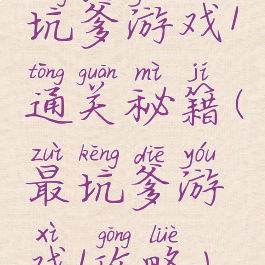 坑爹游戏/
tōng guān mì jí
通关秘籍(
zuì kēng diē yóu
最坑爹游
xì gōng lüè
戏(攻略)